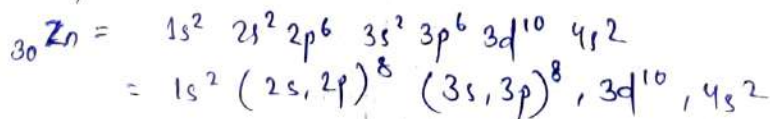 ₃₀Zn = 1s² 2s² 2p⁶ 3s² 3p⁶ 3d¹⁰ 4s²
= 1s² (2s, 2p)⁸ (3s, 3p)⁸, 3d¹⁰, 4s²